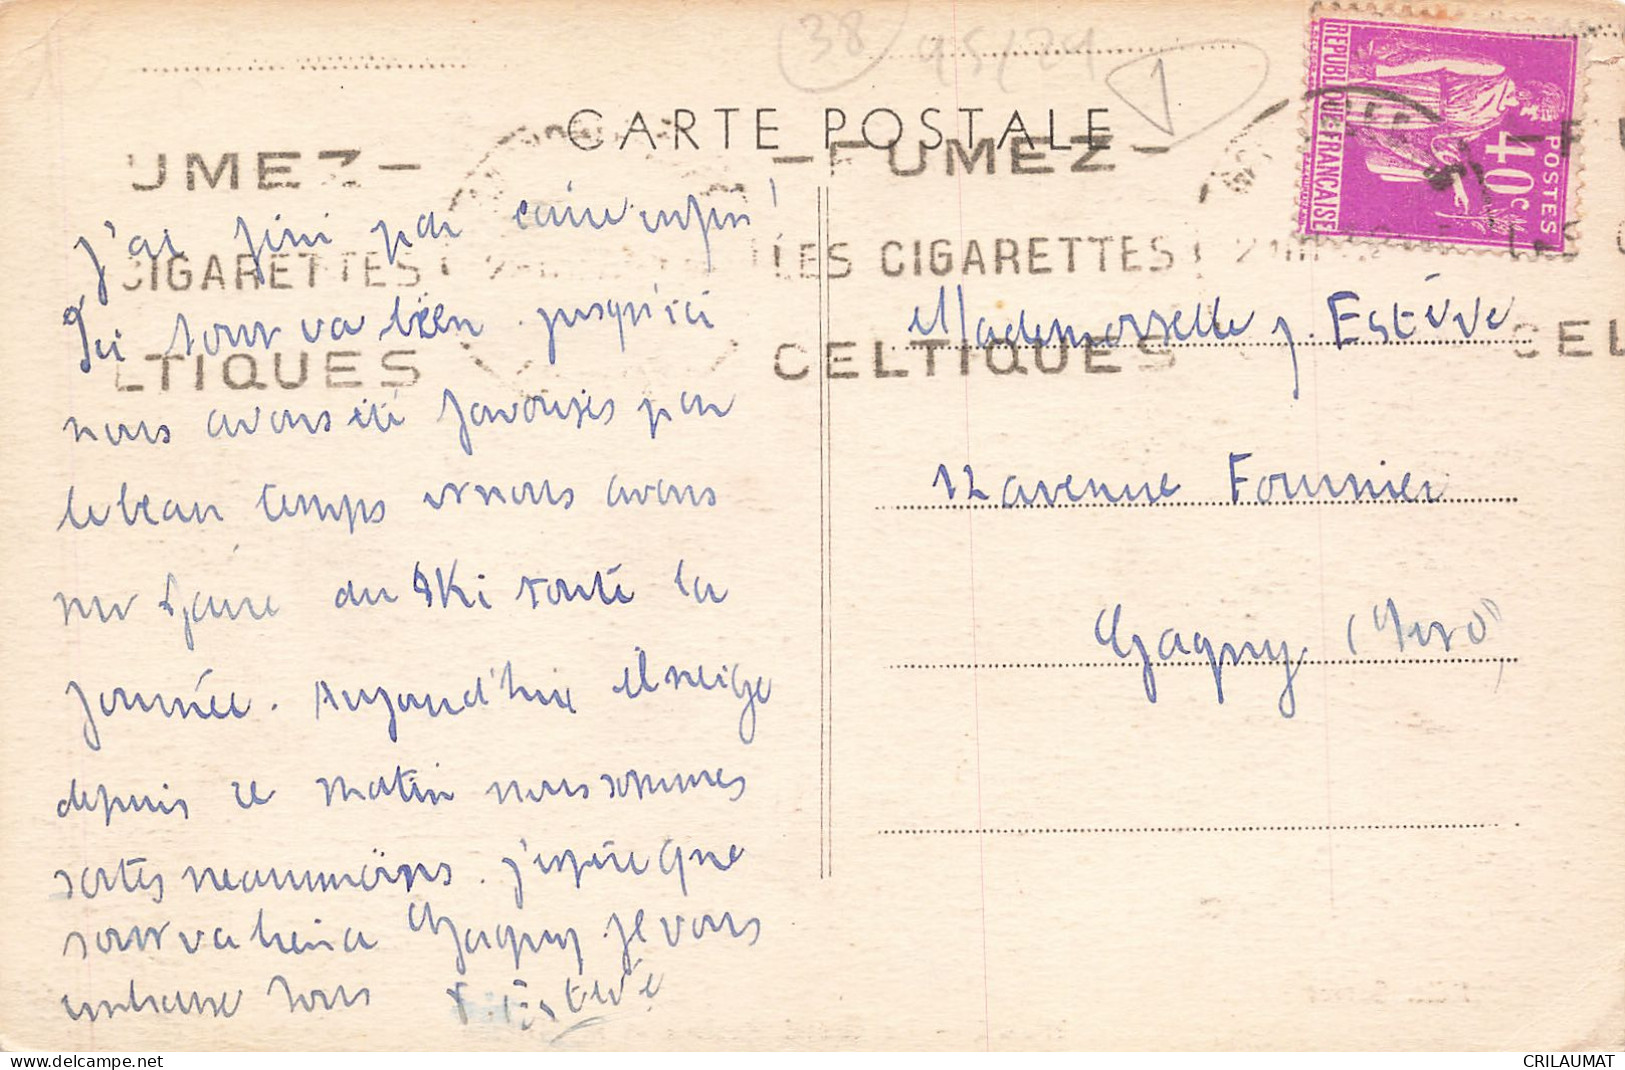 38
45/24
1
CARTE POSTALE
UMEZ-
-FUMEZ-
-FU
CIGARETTES
LES CIGARETTES
LES C
LTIQUES
CELTIQUES
CEL
REPUBLIQUE FRANÇAISE
POSTES
40c
j'ai fini par écrire enfin!
Ici tout va bien. jusqu'ici
nous avons été favorisés par
le beau temps et nous avons
pu faire du ski toute la
journée. Aujourd'hui il neige
depuis ce matin nous sommes
sortis néanmoins. J'espère que
tout va bien à Gagny je vous
embrasse tous Estève
Mademoiselle J. Estève
12 avenue Fournier
Gagny (S et O)
CRILAUMAT
delcampe.net